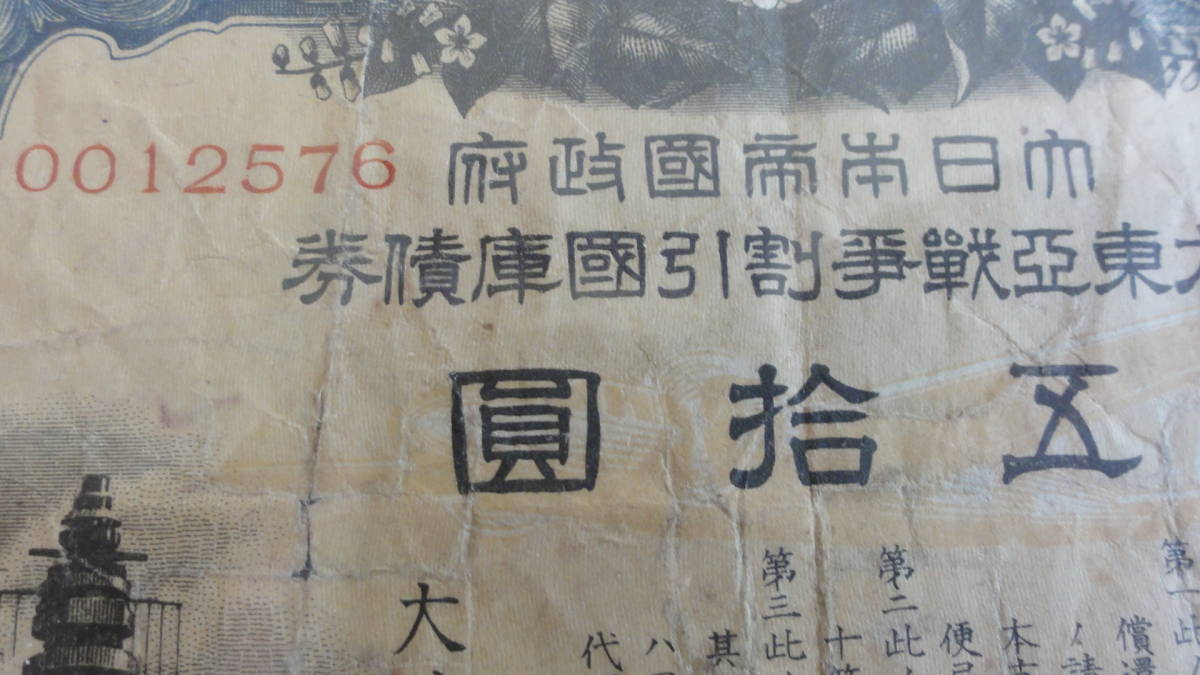 大日本帝國政府
0012576
大東亞戰爭割引國庫債券
五拾圓
第一此
償還
ノ請
本
便
第二此
十
第三此
其
八
代
大